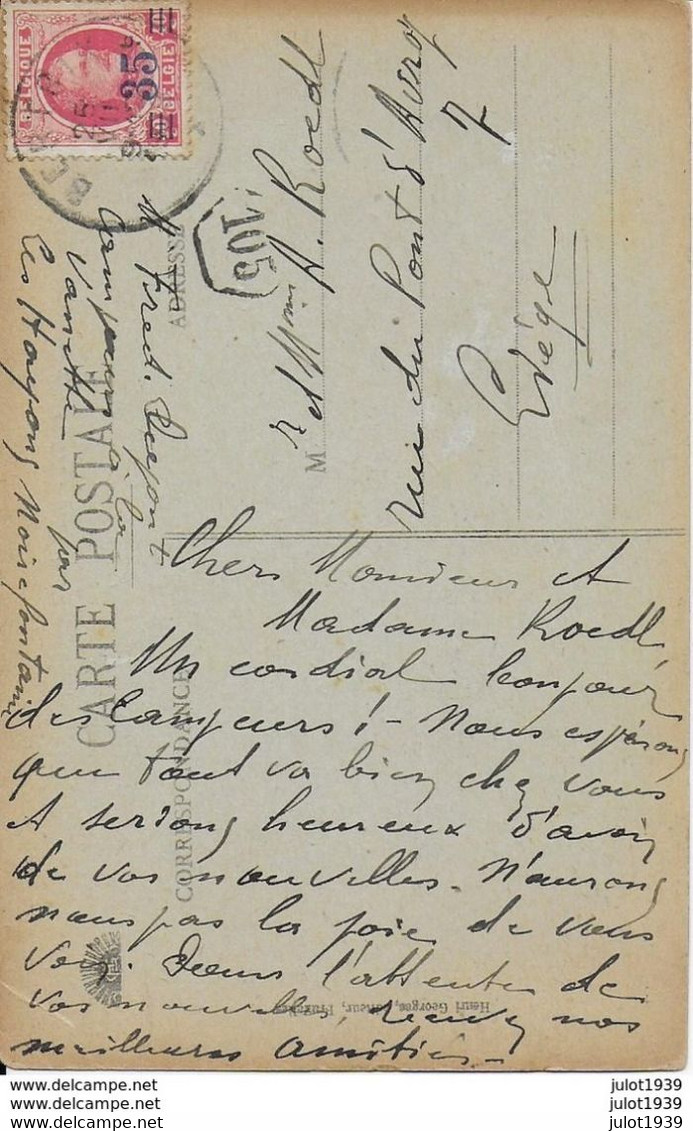 BELGIQUE
BELGIË
35
BERTRIX
105
CARTE POSTALE
CORRESPONDANCE
ADRESSE
M r et Mme A. Roedl
rue du Pont d'Avroy
7
Liége
M Fred.
Campeur à la
Vanette
par
Les Hayons Noirefontaine
Chers Monsieur et
Madame Roedl,
Un cordial bonjour
des Campeurs! - Nous espérons
que tout va bien chez vous
et serions heureux d'avoir
de vos nouvelles. N'aurons
nous pas la joie de vous
voir. Dans l'attente de
vos nouvelles, recevez nos
meilleures amitiés -
Henri Georges, éditeur,
delcampe.net julot1939
delcampe.net julot1939
delcampe.net julot1939